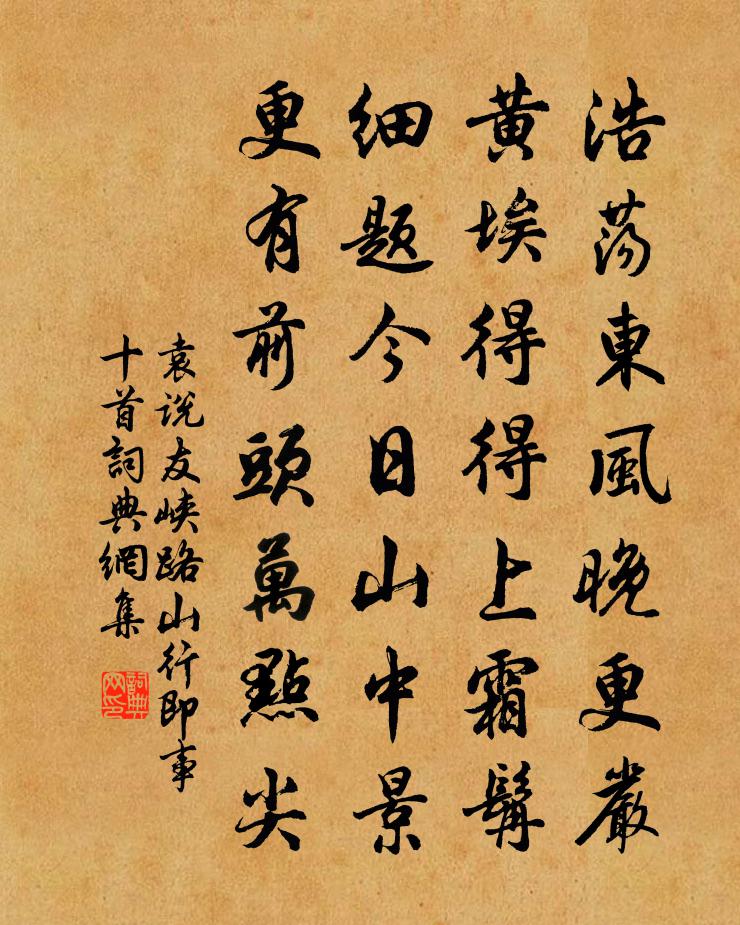 浩荡東風晚更嚴
黄埃得得上霜髯
细题今日山中景
更有前頭萬點尖
袁说友峡路山行即事
十首詞典網集
詞典网印